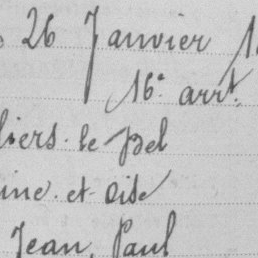 26 Janvier 1
16e arrt.
liers. le Bel
ine. et Oise
Jean, Paul